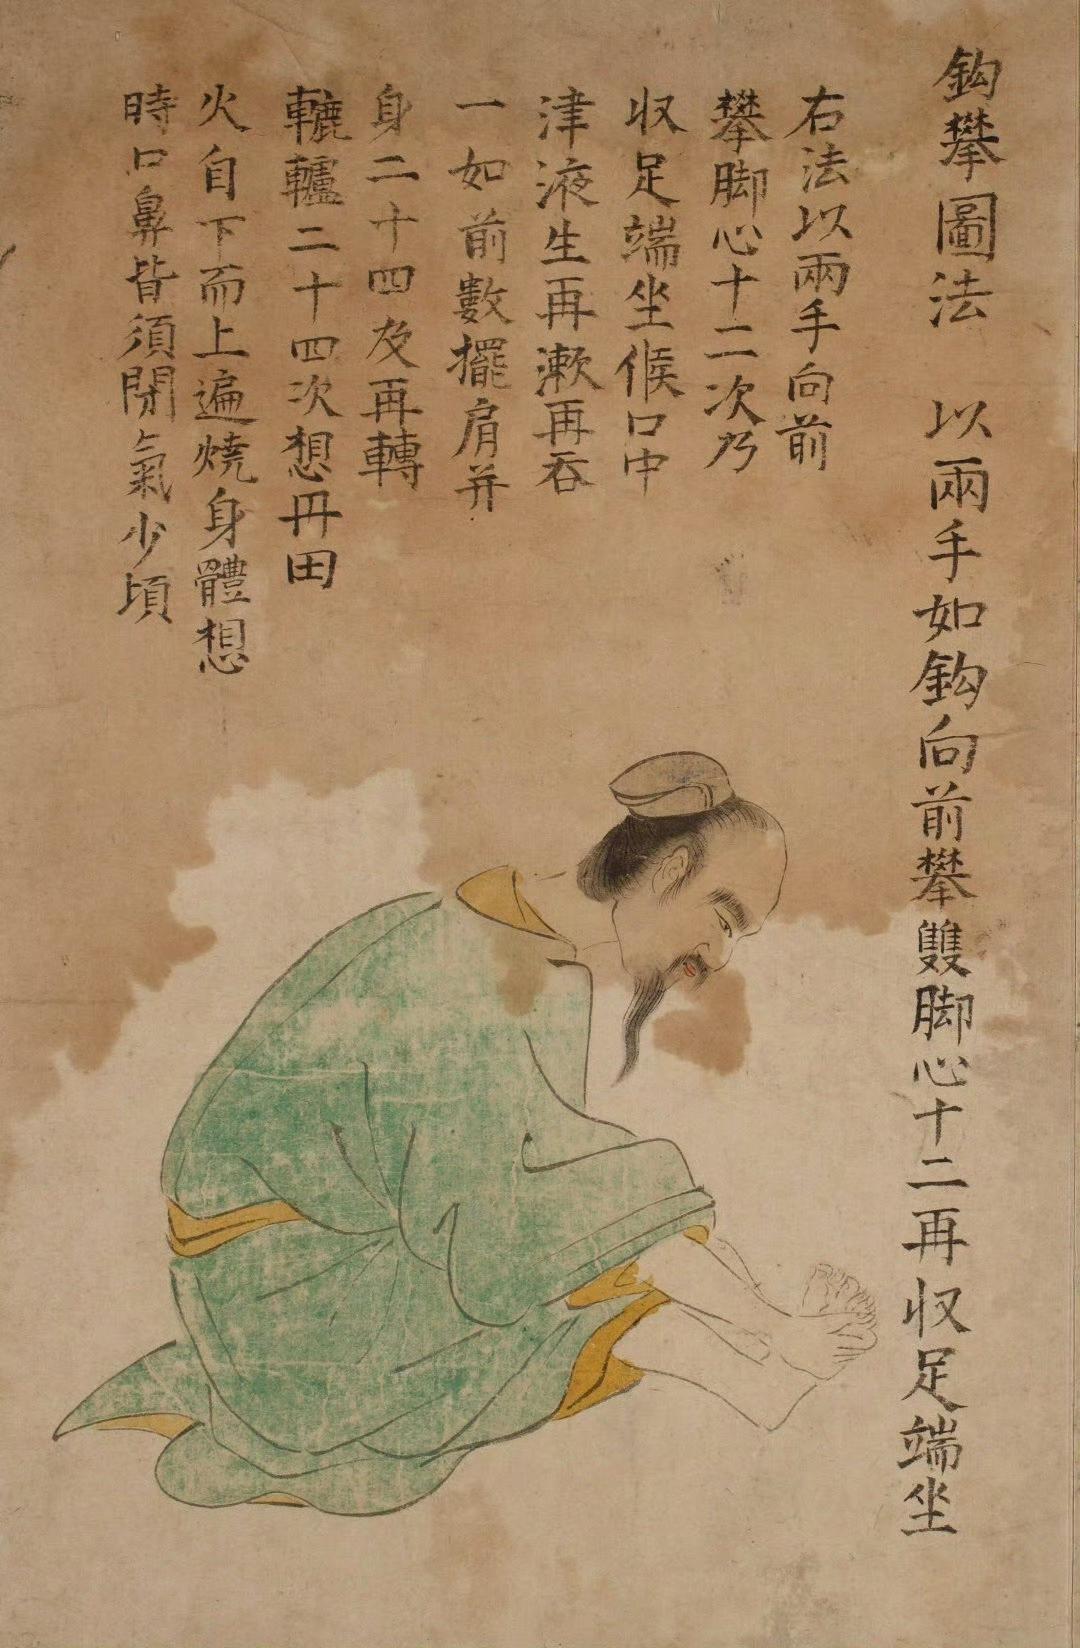 鈎攀圖法　以兩手如鈎向前攀雙脚心十二再収足端坐
右法以兩手向前
攀脚心十二次乃
収足端坐候口中
津液生再漱再吞
一如前數擺肩并
身二十四及再轉
轆轤二十四次想丹田
火自下而上遍燒身體想
時口鼻皆須閉氣少頃